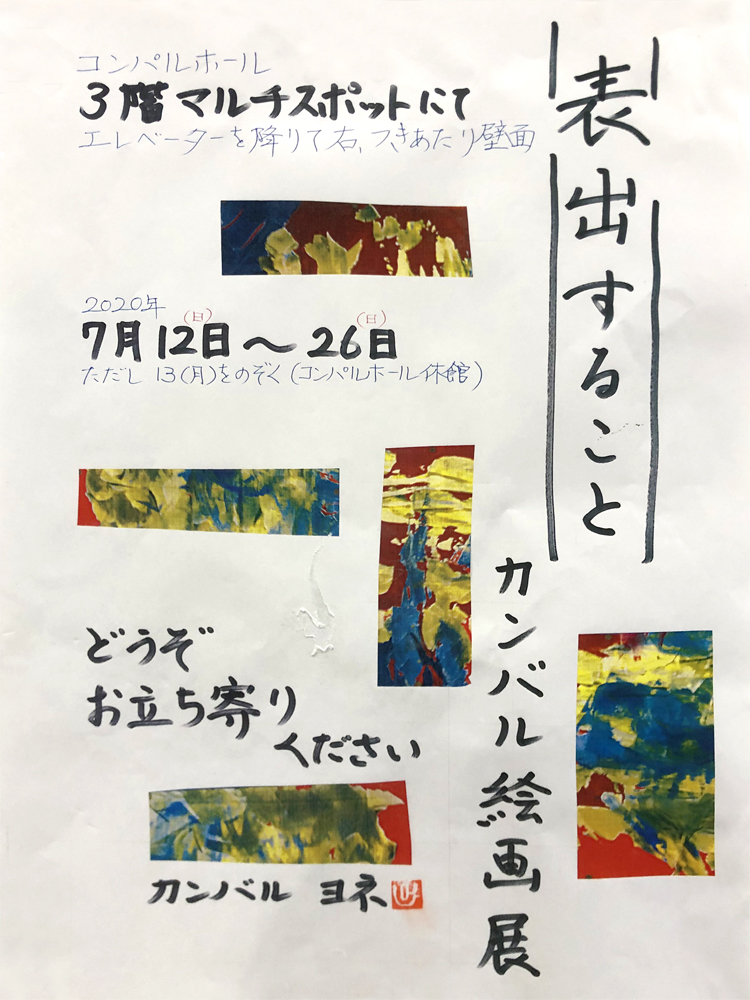 表出すること
カンバル絵画展
コンパルホール
3階マルチスポットにて
エレベーターを降りて右、つきあたり壁面
2020年
7月12日(日)～26日(日)
ただし 13(月)をのぞく(コンパルホール休館)
どうぞ
お立ち寄り
ください
カンバル ヨネ